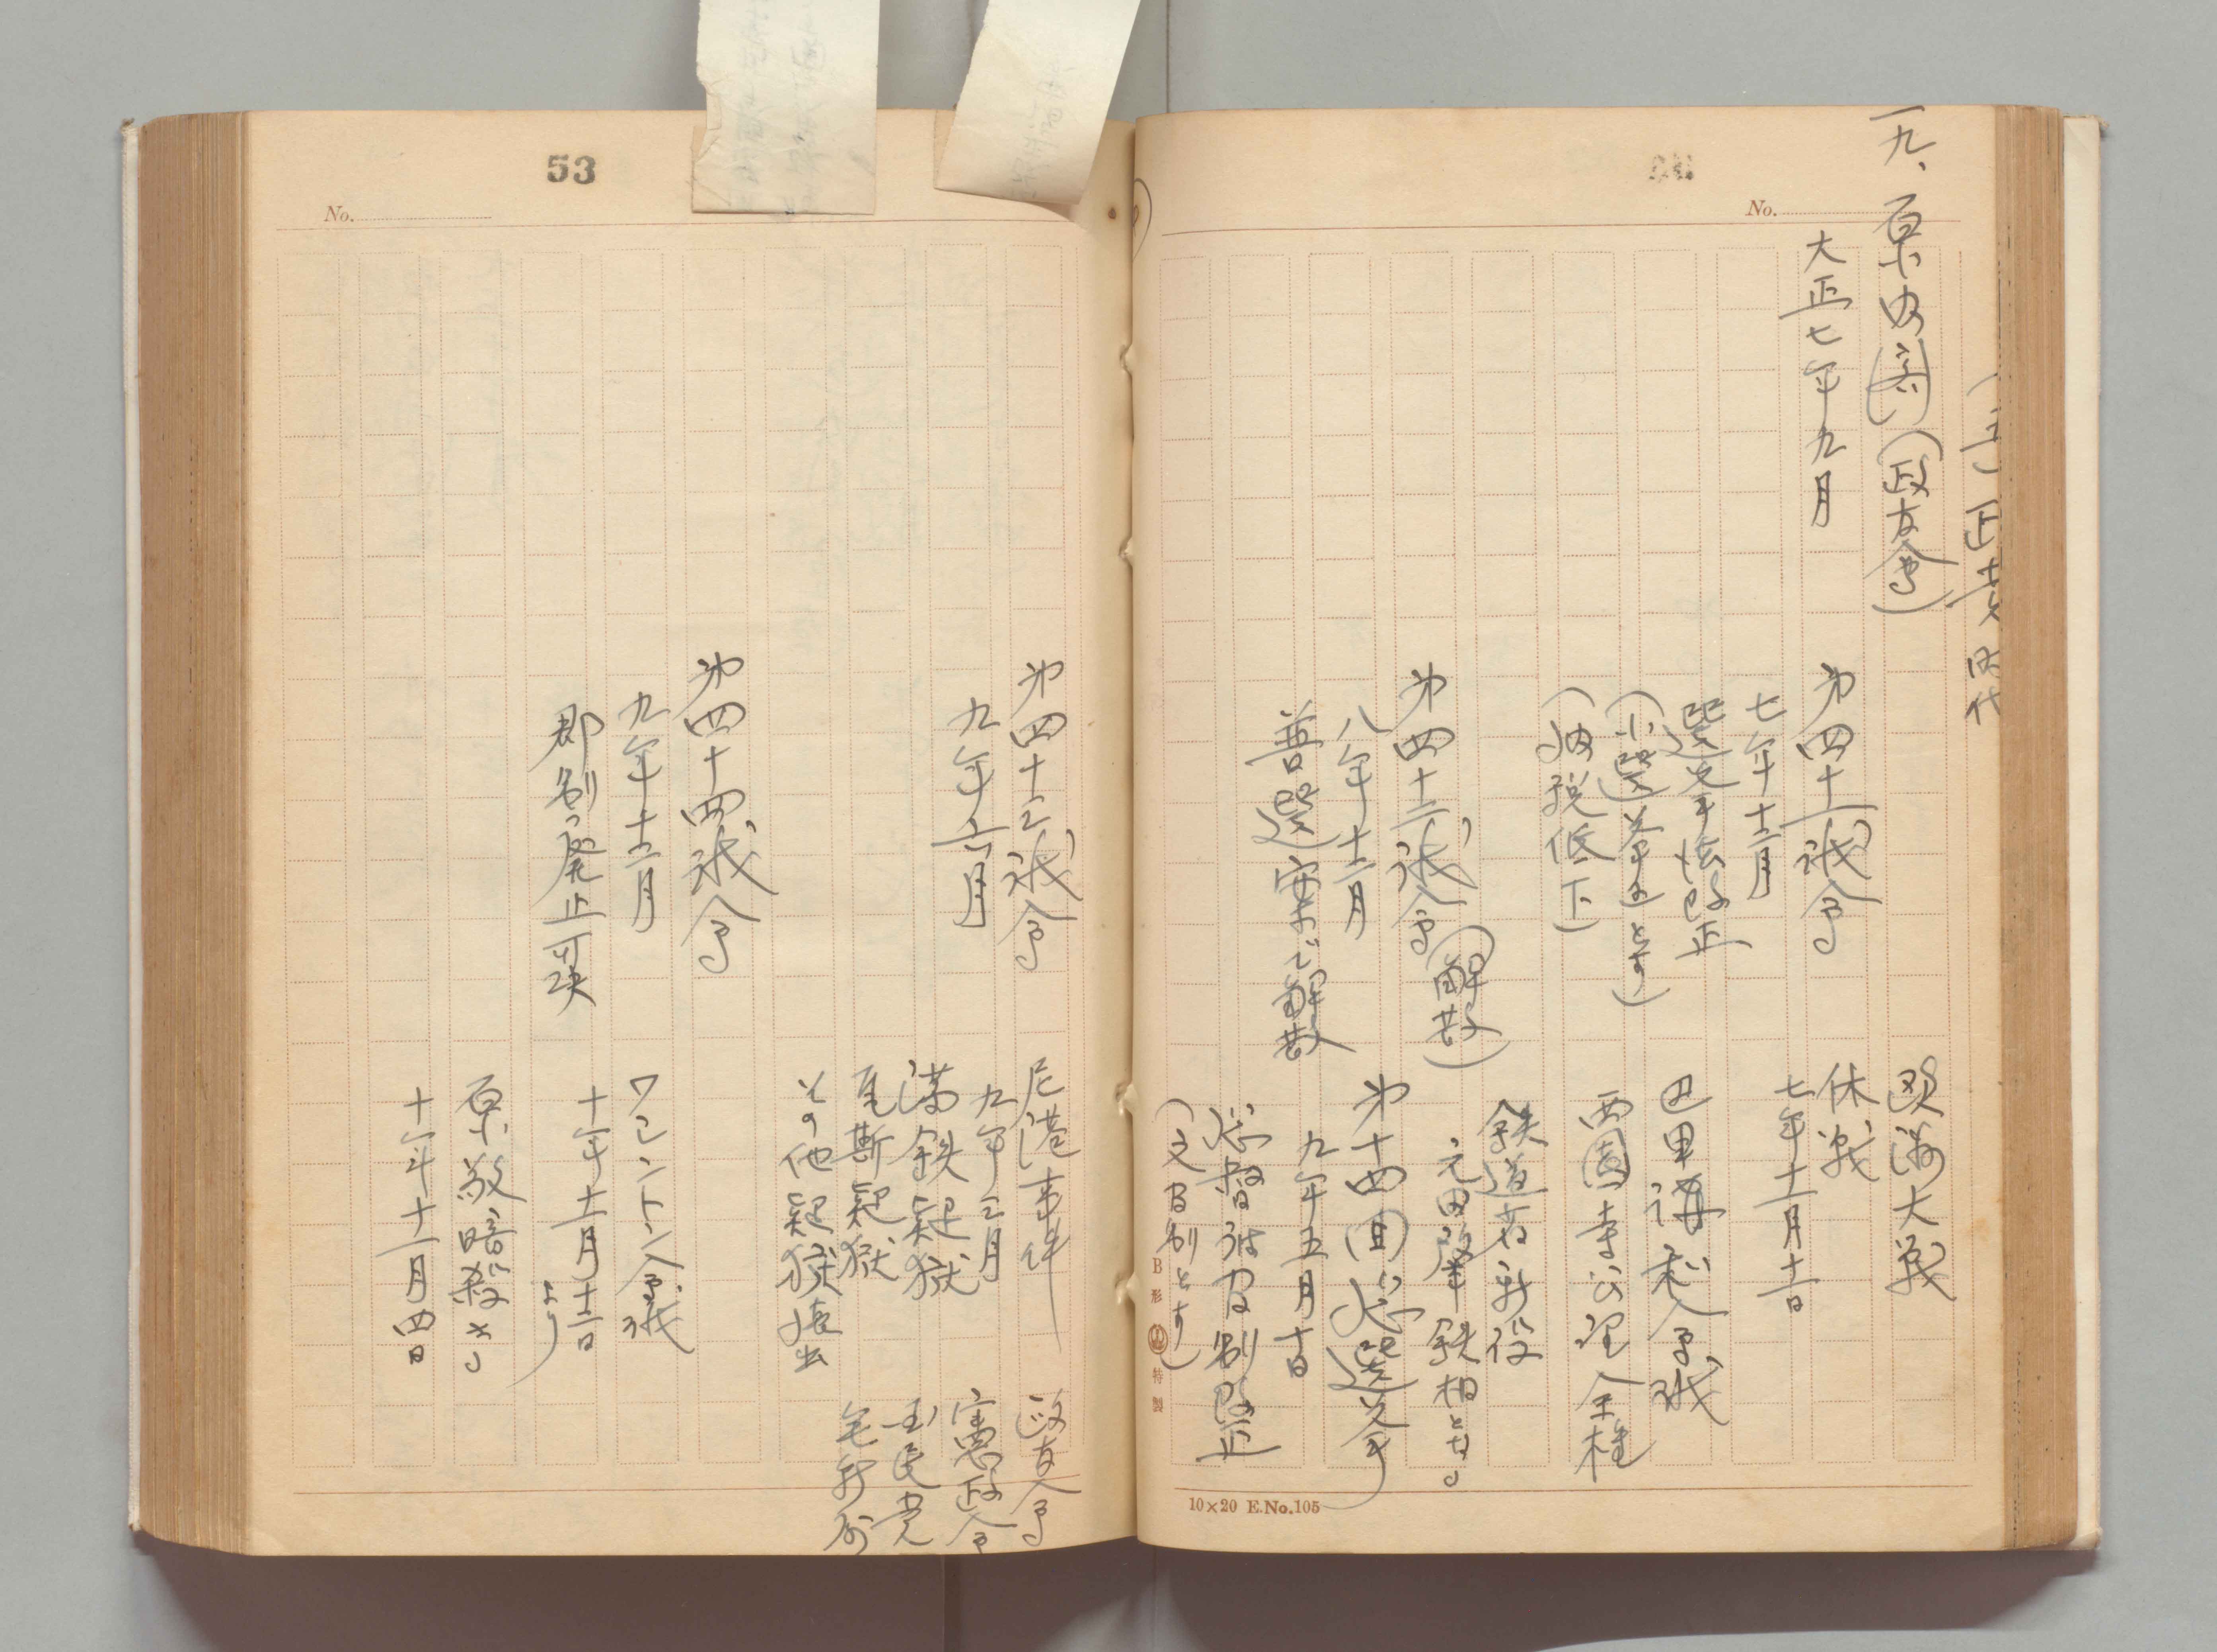 (三)正裁時代
一九、原内閣(政友会)
大正七年九月
第四十一議会
七年十二月
選挙法改正
(小選挙区とす)
(納税低下)
第四十二議会(解散)
八年十二月
普選案にて解散
欧洲大戦
休戦
七年十一月十一日
巴里講和会議
西園寺公望全権
鉄道省新設
元田肇鉄相となる
第十四回総選挙
九年五月十日
総督府官制改正
(文官制とす)
B形 特製
10×20 E.No.105
No.
53
No.
第四十三議会
九年六月
第四十四議会
九年十二月
郡制廃止可決
尼港事件
九年三月
満鉄疑獄
瓦斯疑獄
その他疑獄
ワシントン会議
十年十一月十二日より
原敬暗殺さる
十年十一月四日
政友会
憲政会
国民党
無所属